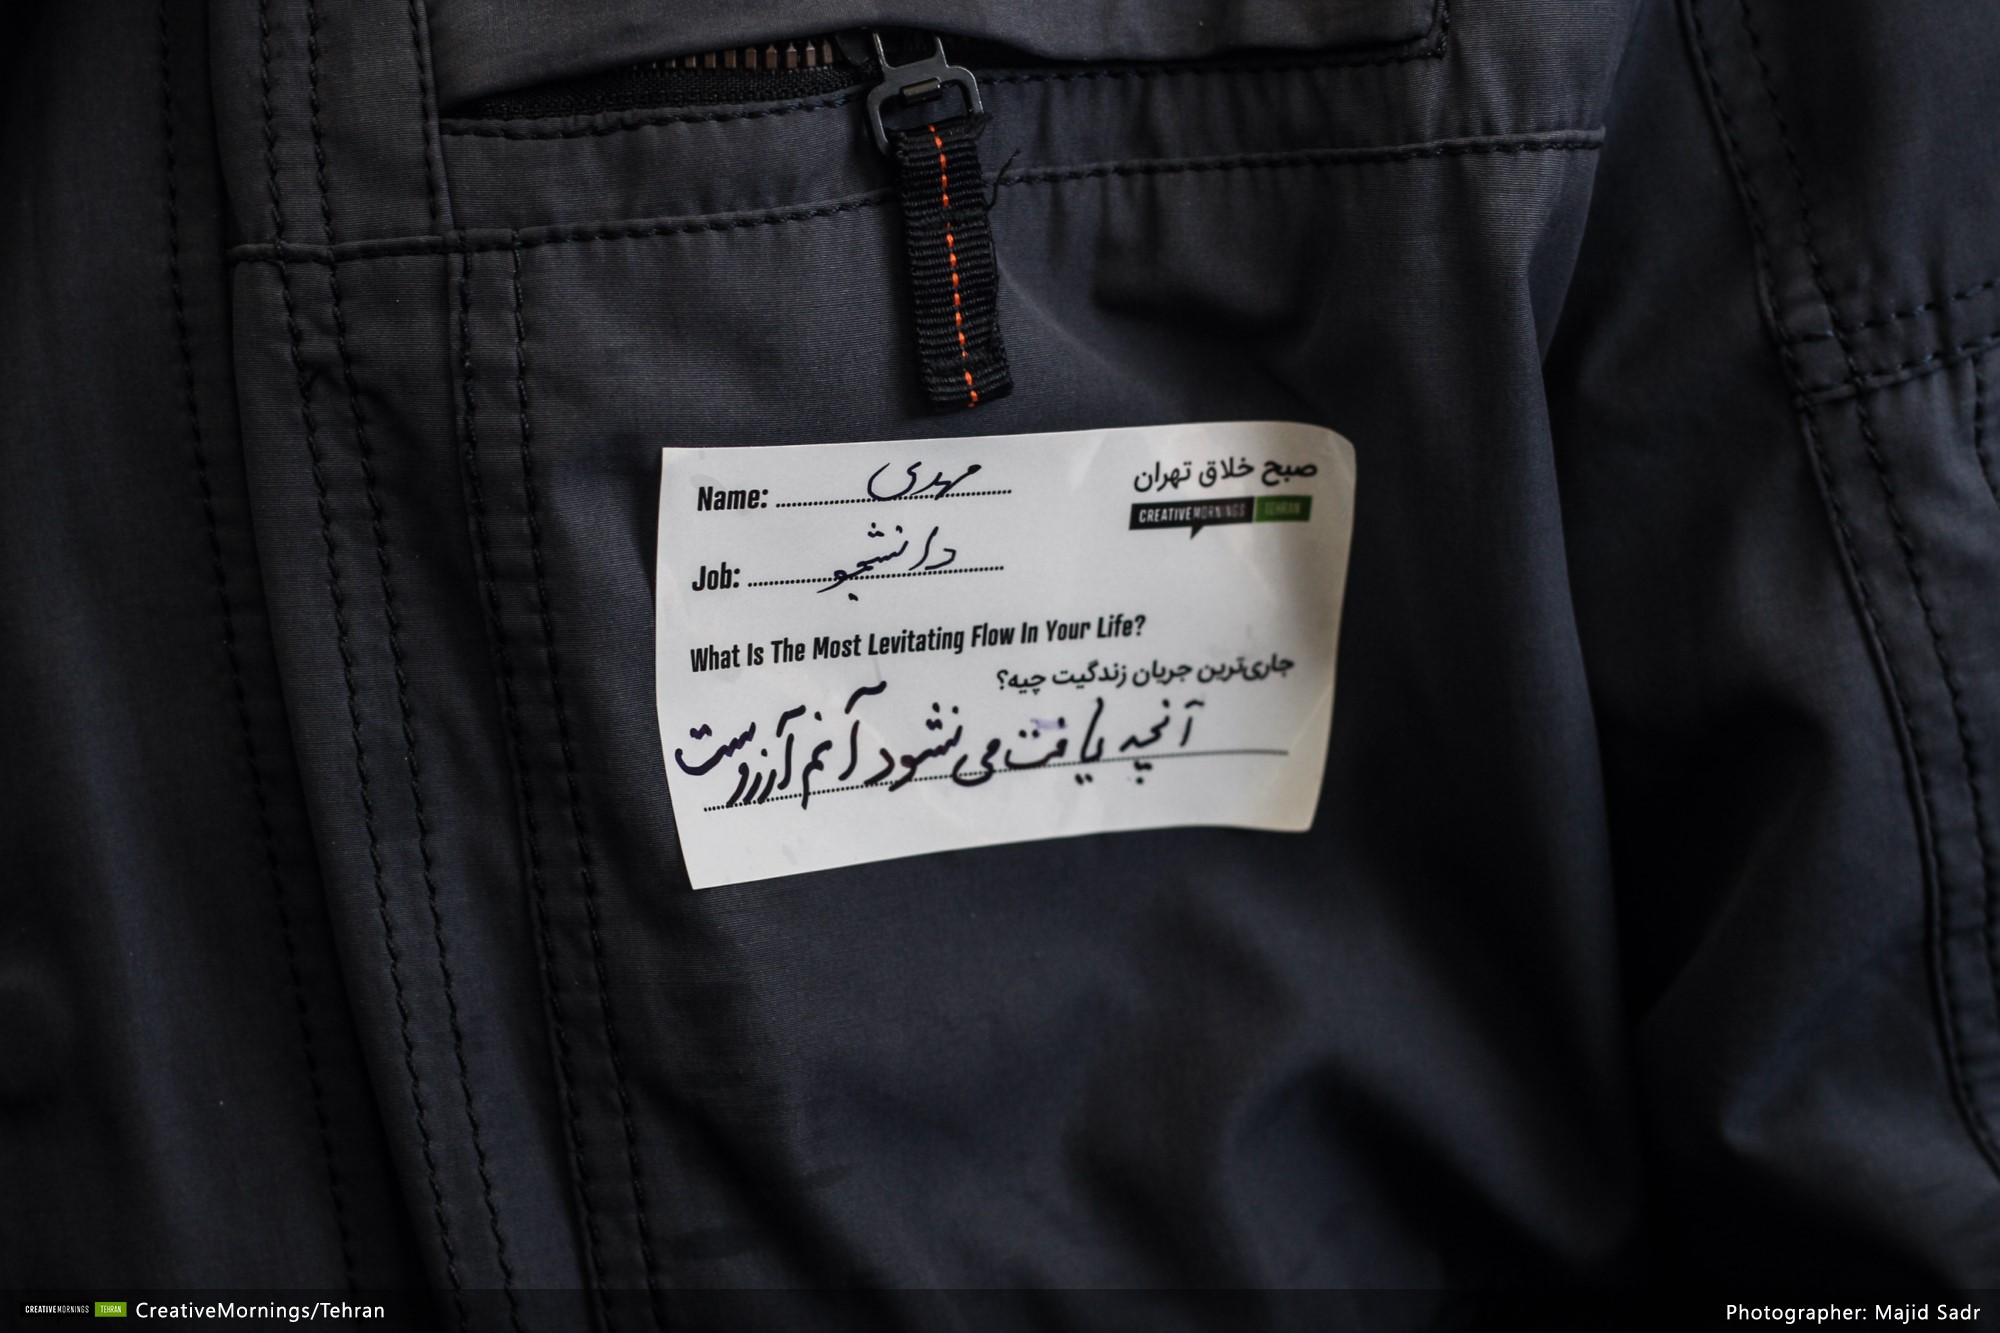 Name: مهدی
صبح خلاق تهران
CREATIVEMORNINGS TEHRAN
Job: دانشجو
What Is The Most Levitating Flow In Your Life?
جاری‌ترین جریان زندگیت چیه؟
آنچه یافت می نشود آنم آرزوست
CREATIVEMORNINGS TEHRAN CreativeMornings/Tehran
Photographer: Majid Sadr